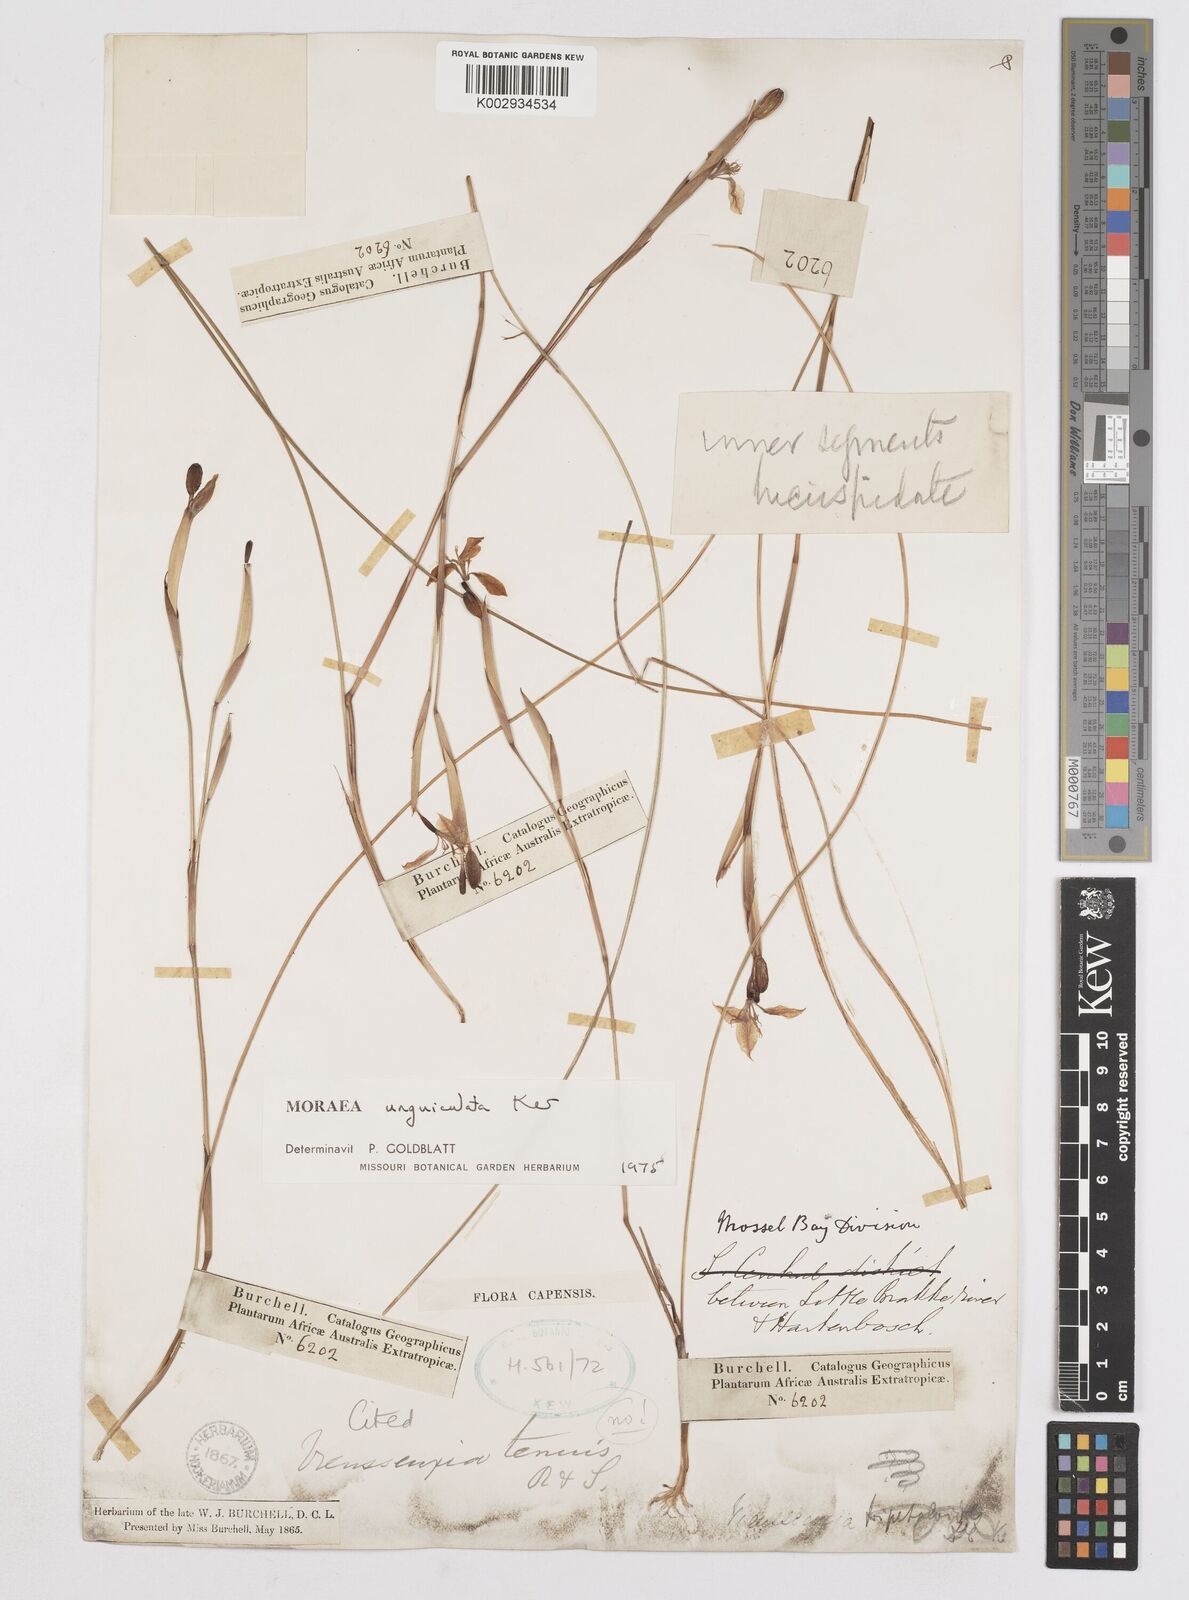 ROYAL BOTANIC GARDENS KEW
K002934534
Burchell. Catalogus Geographicus
Plantarum Africæ Australis Extratropicæ.
No. 6202
6202
inner segments
Burchell. Catalogus Geographicus
Plantarum Africæ Australis Extratropicæ.
No. 6202
MORAEA unguiculata Ker
Determinavit P. GOLDBLATT
MISSOURI BOTANICAL GARDEN HERBARIUM 1975
Mossel Bay Division
S. Central district
between Little Brakke river
& Hartenbosch.
Burchell. Catalogus Geographicus
Plantarum Africæ Australis Extratropicæ.
No. 6202
FLORA CAPENSIS.
H. 561/72
KEW
Burchell. Catalogus Geographicus
Plantarum Africæ Australis Extratropicæ.
No. 6202
Cited
no!
Vieusseuxia tenuis
R & S.
HERBARIUM
1867.
HOOKERIANUM
Herbarium of the late W. J. BURCHELL, D. C. L.
Presented by Miss Burchell, May 1865.
inches
centimeters
Density
Don Williams
M000767
Royal Botanic Gardens
Kew
0 1 2 3 4 5 6 7 8 9 10
cm
copyright reserved